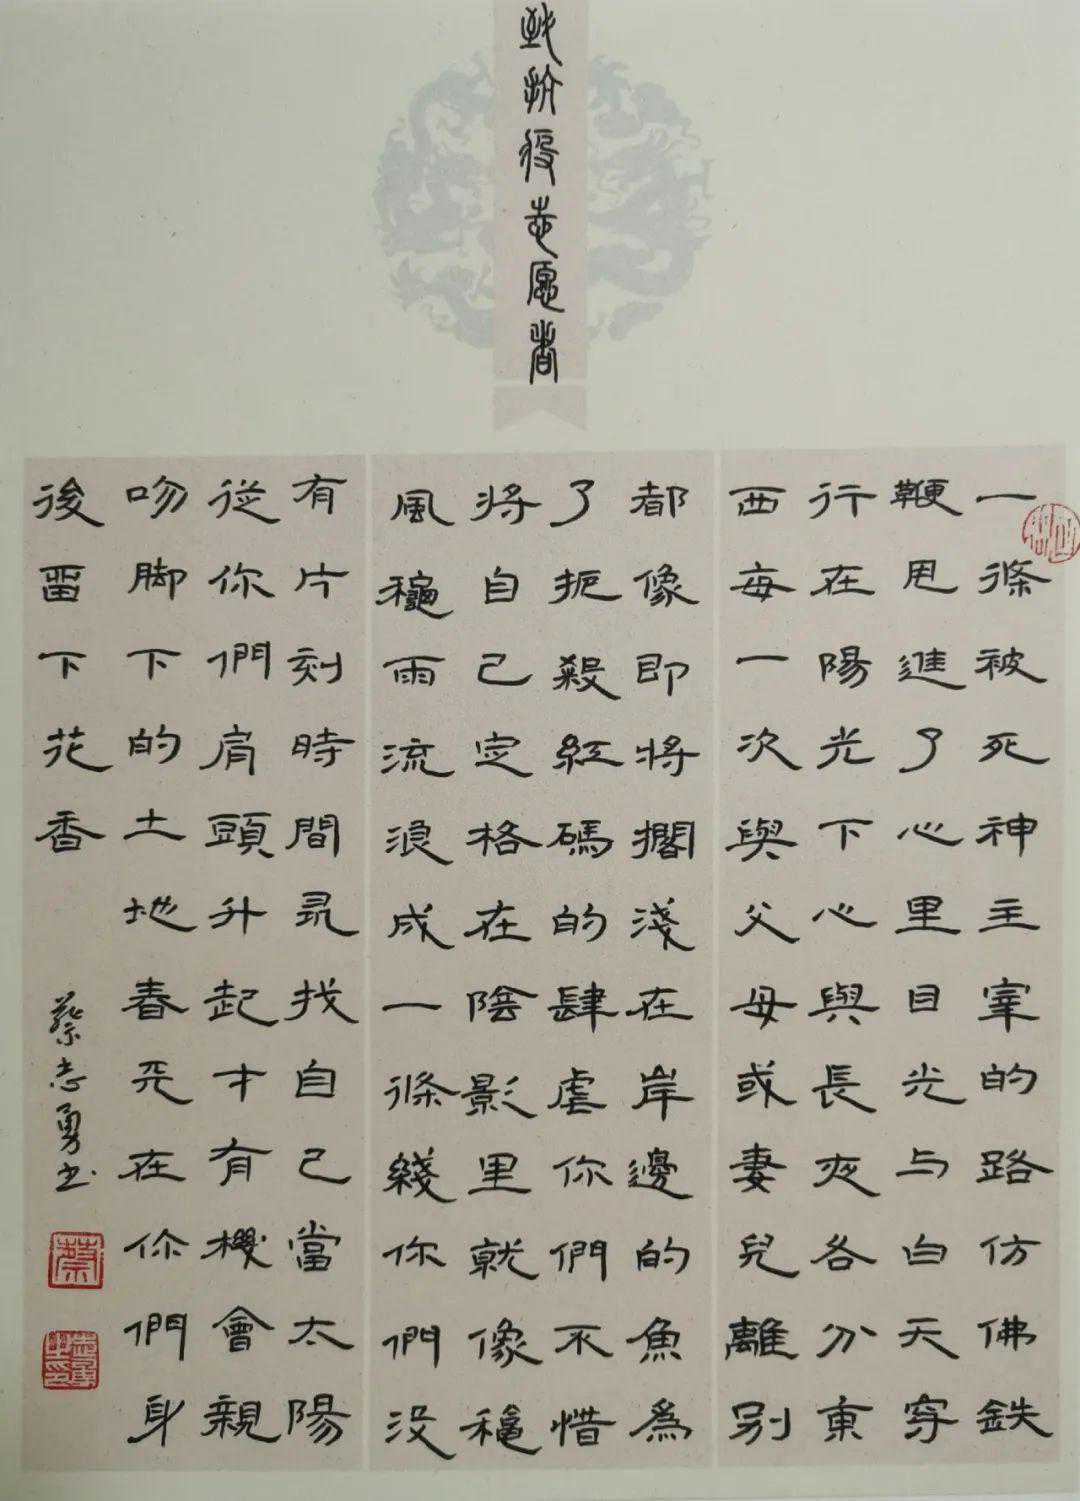 致抗疫志愿者
一條被死神主宰的路仿佛鉄
鞭甩進了心里目光与白天穿
行在陽光下心與長夜各分東
西每一次與父母或妻兒離別
都像即將擱淺在岸邊的魚為
了扼殺紅碼的肆虐你們不惜
將自己定格在陰影里就像穐
風穐雨流浪成一條綫你們没
有片刻時間尋找自己當太陽
從你們肩頭升起才有機會親
吻脚下的土地春天在你們身
後留下花香
蔡志勇书
蔡